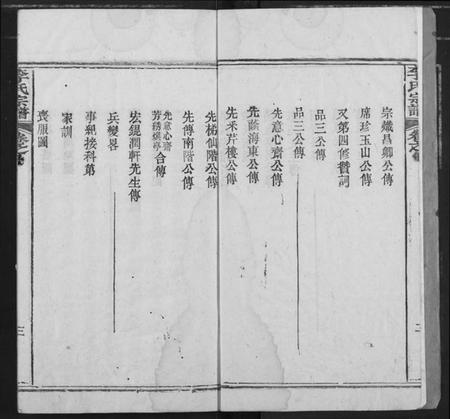 李氏宗譜
宗熾昌卿公傳
席珍玉山公傳
又第四修贊詞
品三公傳
品三公傳
先意心齋公傳
先蔭海東公傳
先釆芹樓公傳
先梯仙階公傳
先傳南階公傳
先意心齋
芳綉煥亭 合傳
宏鋧潤軒先生傳
兵變畧
事綱接科第
家訓
喪服圖
三
李氏宗譜